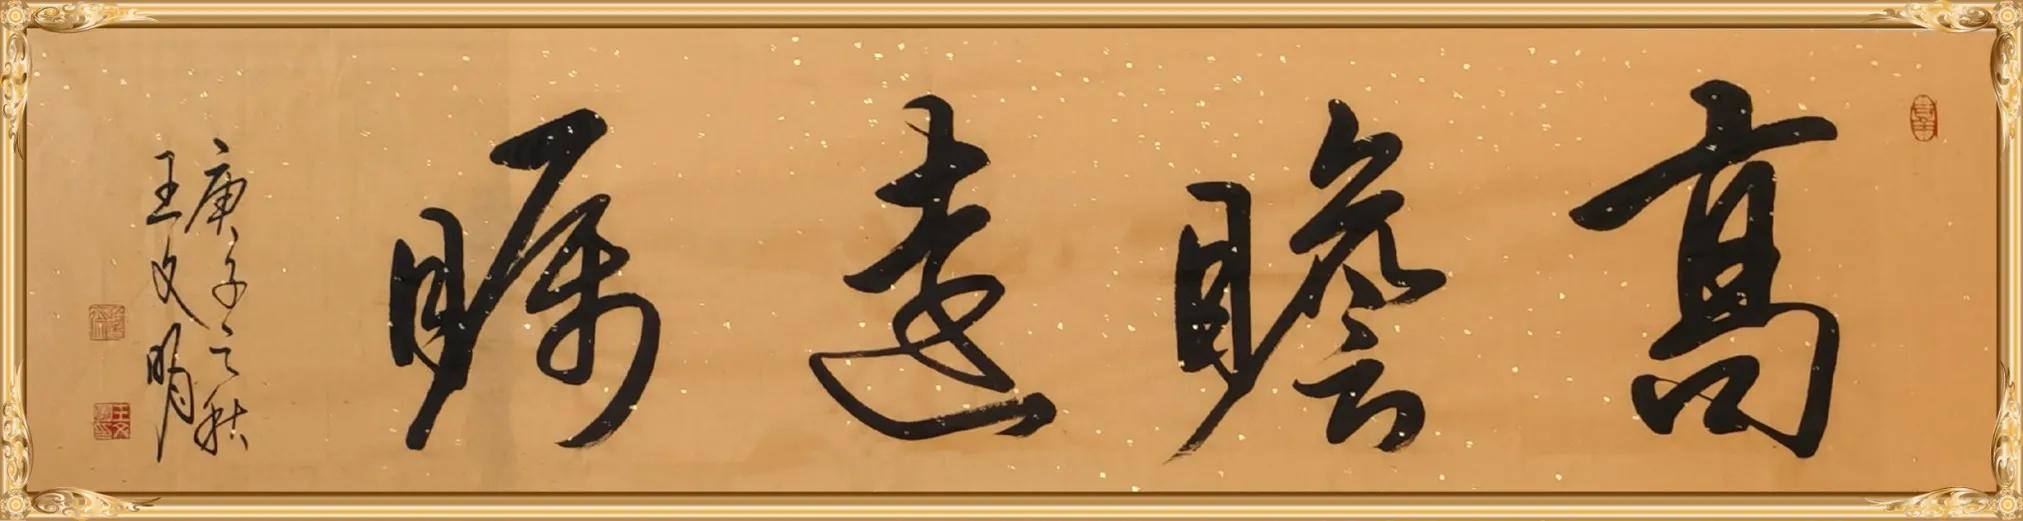 高瞻遠矚
庚子之秋
王文明